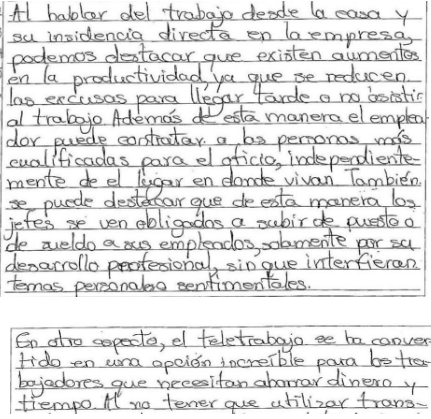 Al hablar del trabajo desde la casa y
su insidencia directa en la empresa,
podemos destacar que existen aumentos
en la productividad, ya que se reducen
las excusas para llegar tarde o no asistir
al trabajo. Además de esta manera el emplea-
dor puede contratar a las personas más
cualificadas para el oficio, independiente-
mente de el lugar en donde vivan. También
se puede destacar que de esta manera los
jefes se ven obligados a subir de puesto o
de sueldo a sus empleados, solamente por su
desarrollo profesional, sin que interfieran
temas personales o sentimentales.
En otro aspecto, el teletrabajo se ha conver-
tido en una opción increíble para los tra-
bajadores que necesitan ahorrar dinero y
tiempo. Al no tener que utilizar trans-